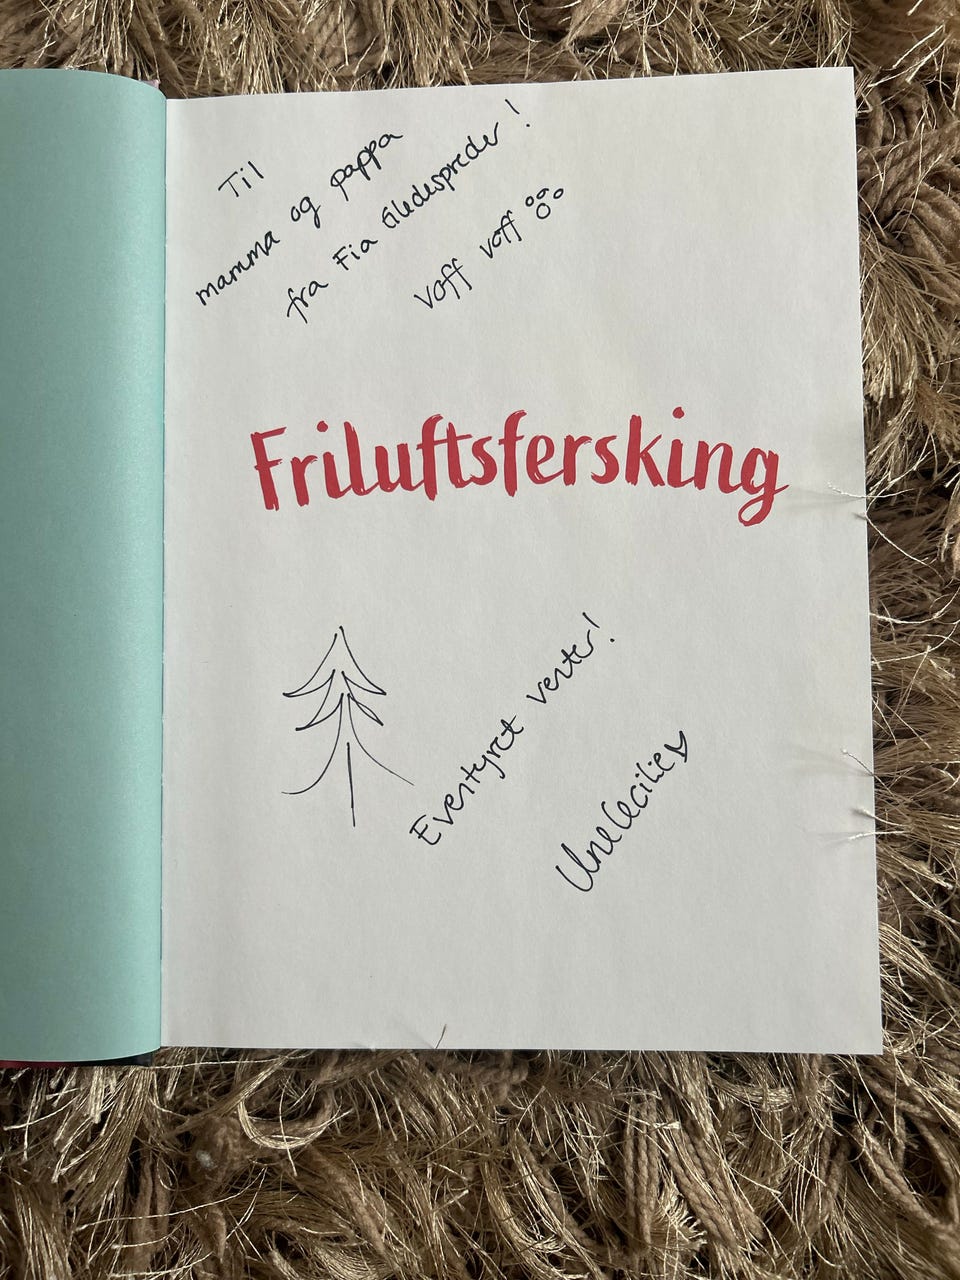 Til
mamma og pappa
fra Fia Gledespreder!
voff voff
Friluftsfersking
Eventyret venter!
UneCecilie